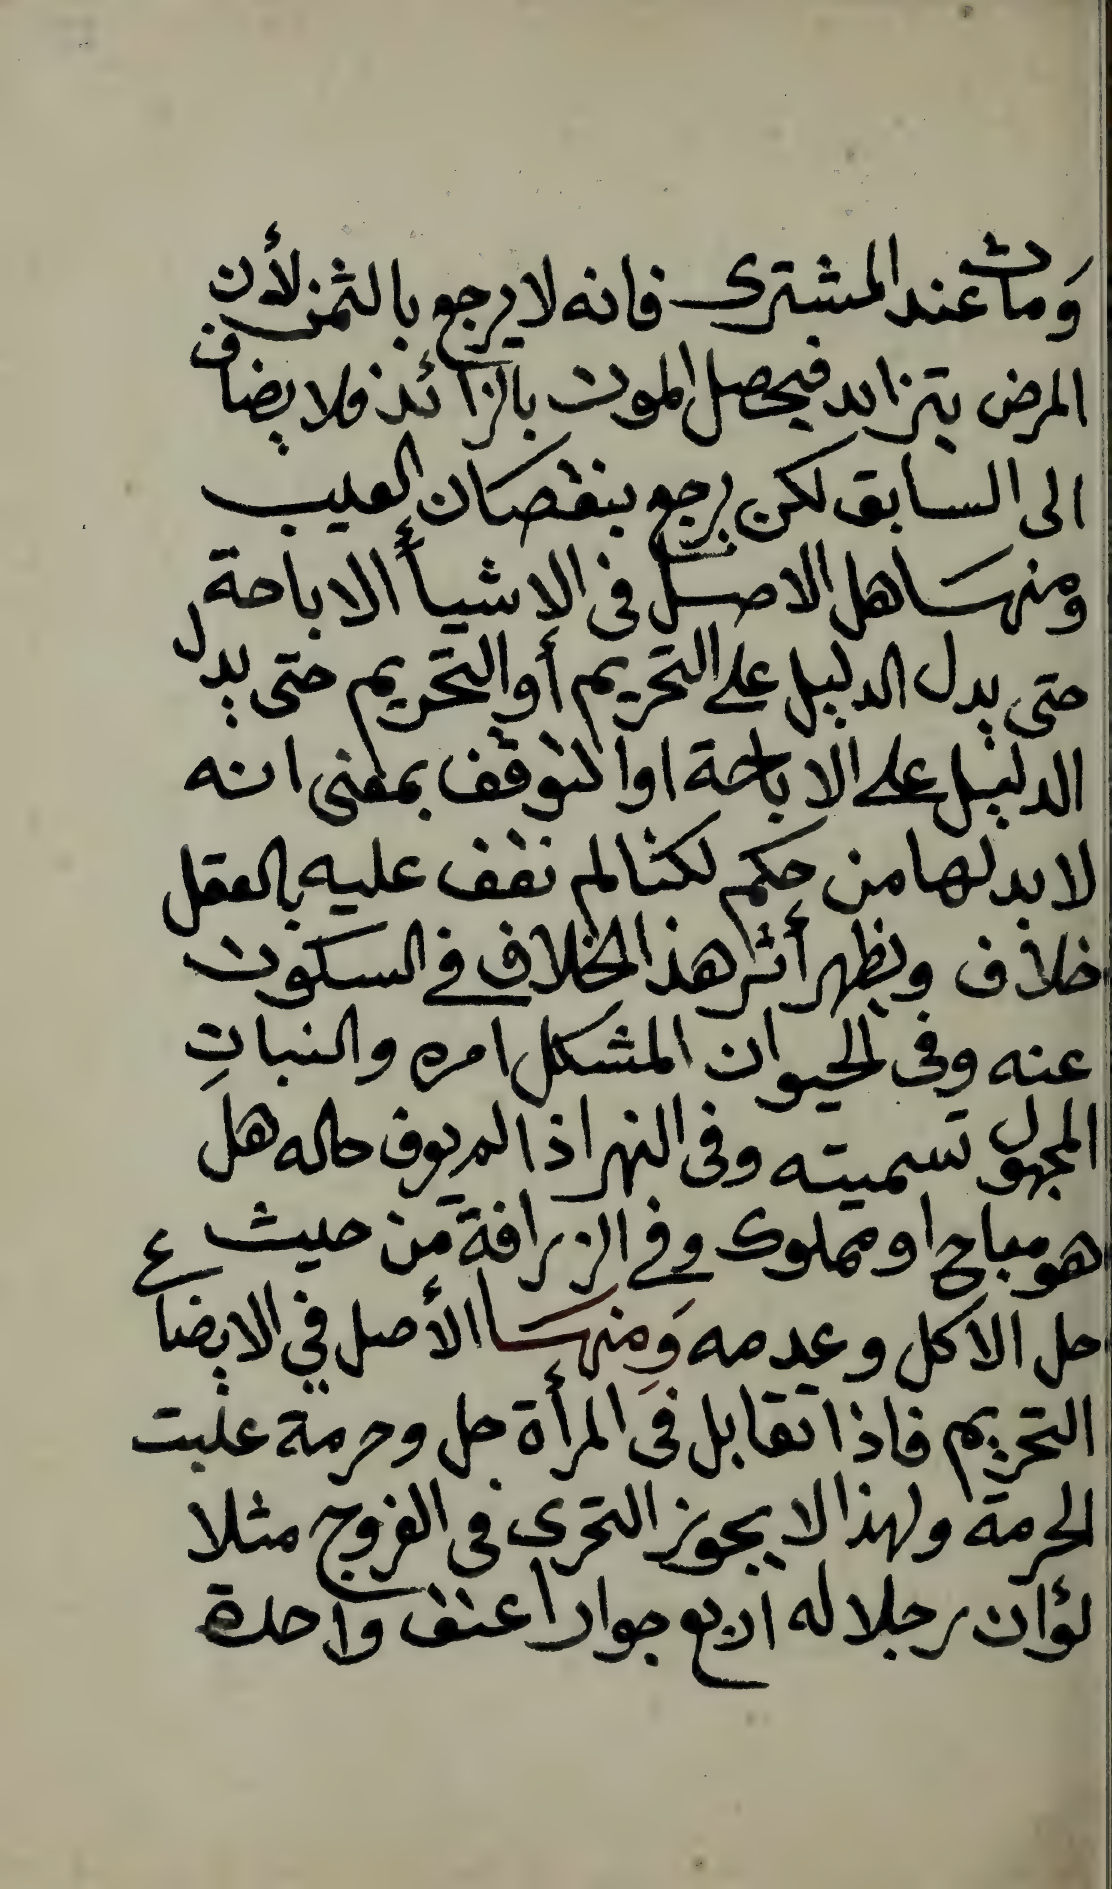 وَمات عند المشترى فانه لا يرجع بالثمن لأن
المرض يتزايد فيحصل الموت بالزائد فلا يضاف
الى السابق لكن يرجع بنقصان العيب
ومنها هل الاصل فى الاشيأ الاباحة
حتى يدل الدليل على التحريم أو التحريم حتى يدل
الدليل على الاباحة او التوقف بمعنى انه
لا بد لها من حكم لكنا لم نقف عليه بالعقل
خلاف ويظهر أثر هذا الخلاف في السكوت
عنه وفى الحيوان المشكل امره والنباتِ
المجهول تسميته وفى النهر اذا لم يعرف حاله هل
هو مباح او مملوك وفي الزرافة من حيث
حل الاكل وعدمه وَمنها الأصل في الابضاع
التحريم فاذا تقابل فى المرأة حل وحرمة غلبت
الحرمة ولهذا لا يجوز التحرى فى الفروج مثلا
لو ان رجلا له اربع جوار اعتق واحدة